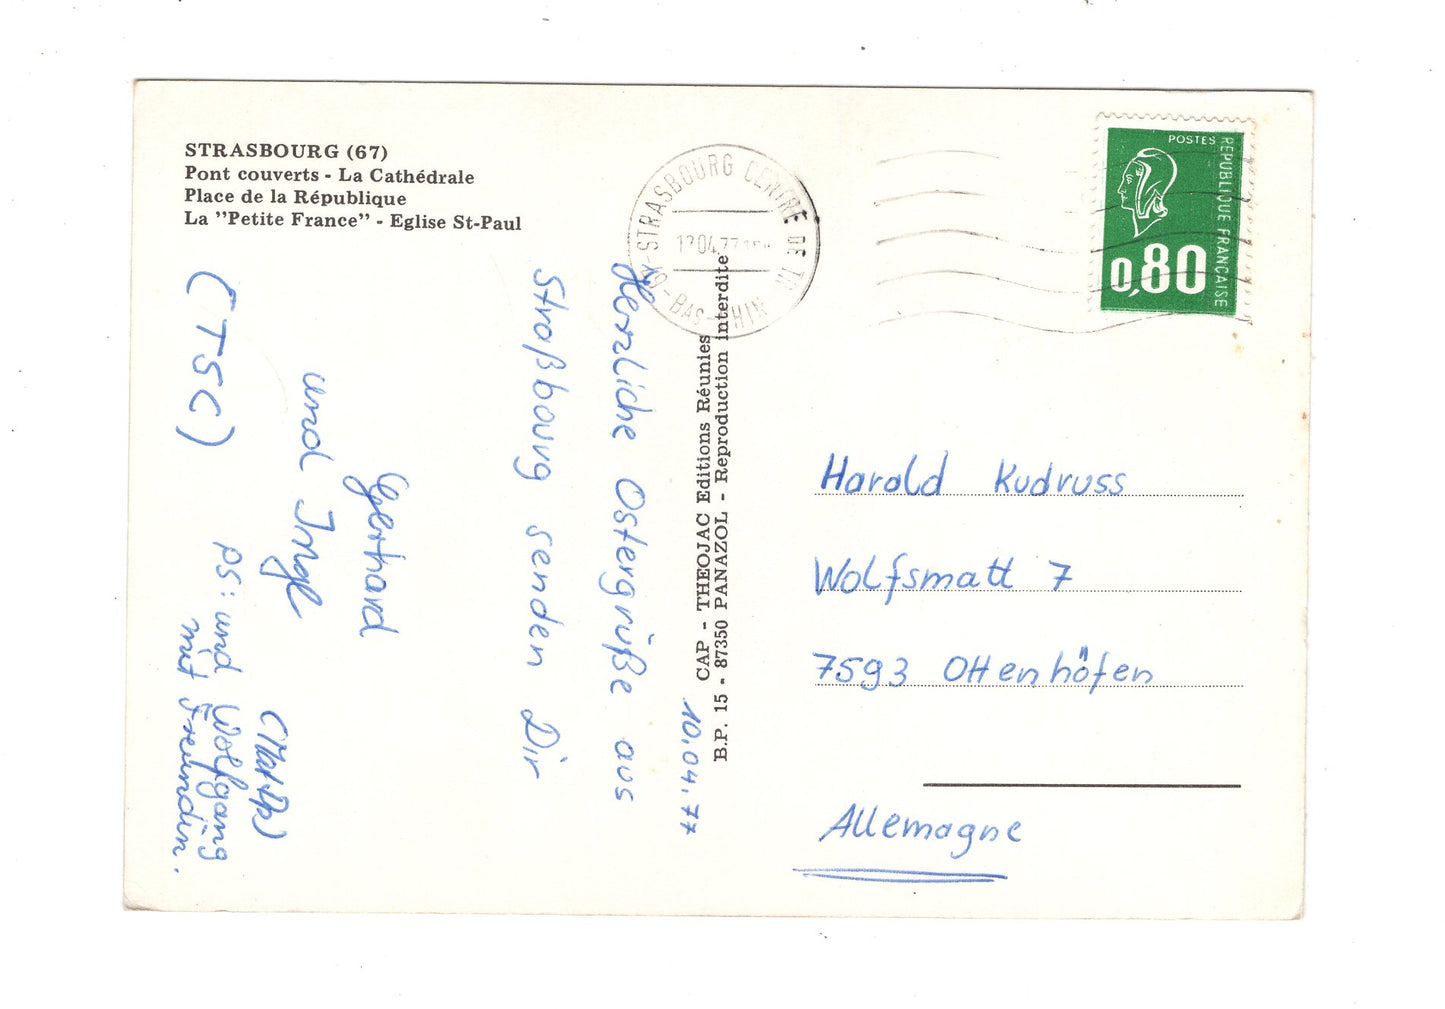 STRASBOURG (67)
Pont couverts - La Cathédrale
Place de la République
La "Petite France" - Eglise St-Paul
67-STRASBOURG CENTRE DE TRI
04.77
BAS-RHIN
POSTES
REPUBLIQUE FRANÇAISE
0,80
10.04.77
Herzliche Ostergrüße aus
Straßbourg senden Dir
Gerhard
und Inge
(TSC)
PS: und Wolfgang
mit Freundin.
CAP - THEOJAC Editions Réunies
B.P. 15 - 87350 PANAZOL - Reproduction interdite
Harald Kudruss
Wolfsmatt 7
7593 Ottenhöfen
Allemagne